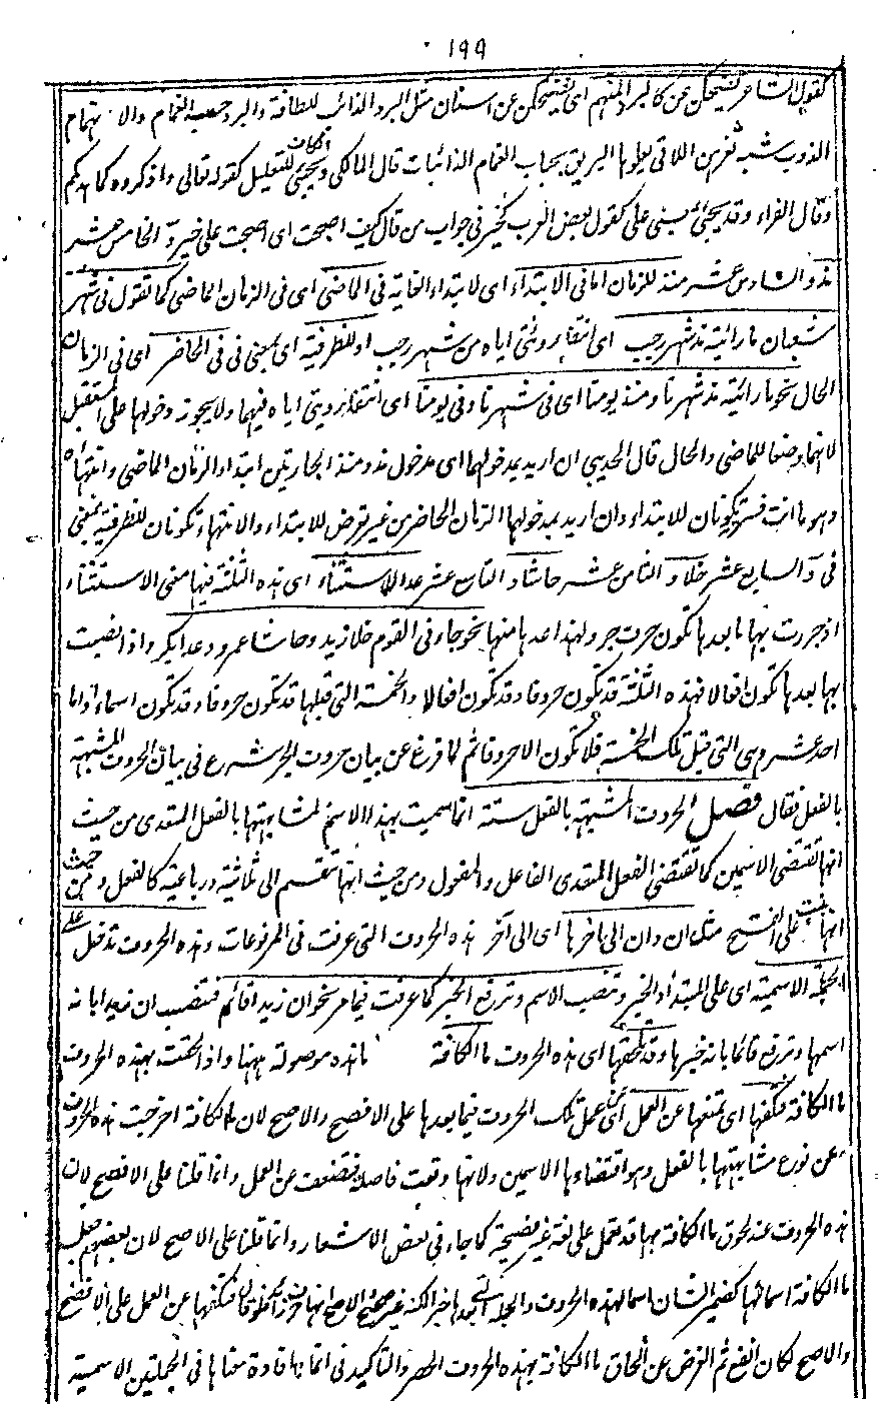 ١٩٩
كقول الشاعر يضحكن عن كالبرد المنهم اى يضحكن عن اسنان مثل البرد الذائب للطافة والبرد حب الغمام والانهمام
الذوب شبه ثغرهن اللاتى يعلوها البريق بحباب الغمام الذائبات قال المالكى ويجئ الكاف للتعليل كقوله تعالى واذكروه كما هدىكم
وقال الفراء وقد يجئ بمعنى على كقول بعض العرب كخير فى جواب من قال كيف اصبحت اى اصبحت على خير والخامس عشر
مذ والسادس عشر منذ للزمان اما فى الابتداء اى لابتداء الغاية فى الماضى اى فى الزمان الماضى كما تقول فى شهر
شعبان ما رائيته مذ شهر رجب اى انتفاء رويتى اياه من شهر رجب او للظرفية اى بمعنى فى فى الحاضر اى فى الزمان
الحال نحو ما رائيته مذ شهرنا ومنذ يومنا اى فى شهرنا وفى يومنا اى انتفاء رويتى اياه فيهما ولا يجوز دخولها على المستقبل
لانهما وضعا للماضى والحال قال الحديبى ان اريد بمدخولهما اى مدخول مذ ومنذ الجارتين ابتداء الزمان الماضى وانتهاءه
وهو ما انت فيه تكونان للابتداء وان اريد بمدخولها الزمان الحاضر من غير تعرض للابتداء والانتهاء تكونان للظرفية بمعنى
فى والسابع عشر خلا والثامن عشر حاشا والتاسع عشر عدا للاستثناء اى هذه الثلثة فيها معنى الاستثناء
اذ جررت بها ما بعدها تكون حرف جر ولهذا عدها منها نحو جاءنى القوم خلا زيد وحاشا عمرو وعدا بكر واذا نصبت
بها بعدها تكون افعالا فهذه الثلثة قد تكون حروفا وقد تكون افعالا والخمسة التى قبلها قد تكون حروفا وقد تكون اسماء واما
احد عشر وهى التى قبل تلك الخمسة فلا تكون الا حروفا ثم لما فرغ عن بيان حروف الجر شرع فى بيان الحروف المشبهة
بالفعل فقال فصل الحروف المشبهة بالفعل ستة انما سميت بهذا الاسم لمشابهتها بالفعل المتعدى من حيث
انها تقتضى الاسمين كما تقتضى الفعل المتعدى الفاعل والمفعول ومن حيث انها تنقسم الى ثلاثية ورباعية كالفعل ومن حيث
انها بنيت على الفتح مثل ان وان الى اخرها اى الى آخر هذه الحروف التى عرفت فى المرفوعات وهذه الحروف تدخل على
الجملة الاسمية اى على المبتدأ والخبر وتنصب الاسم وترفع الخبر كما عرفت فيما مر نحو ان زيدا قائم فتنصب ان زيدا بانه
اسمها وترفع قائما بانه خبرها وقد تلحقها اى هذه الحروف ما الكافة ما هذه موصولة ههنا واذا لحقت بهذه الحروف
ما الكافة فتكفها اى تمنعها عن العمل اى عن عمل تلك الحروف فيما بعدها على الافصح والاصح لان ما الكافة اخرجت هذه الحروف
عن نوع مشابهتها بالفعل وهو اقتضاءها الاسمين ولانها وقعت فاصلة فتضعف عن العمل وانما قلنا على الافصح لان
هذه الحروف عند لحوق ما الكافة بها قد تعمل على لغة غير فصيحة كما جاء فى بعض الاشعار وانما قلنا على الاصح لان بعضهم جعلت
ما الكافة اسما لها كضمير الشان اسما لهذه الحروف والجملة التى بعدها خبرا لكنه غير صحيح الاصح انها حرف فتكفها عن العمل على الافصح
والاصح لكان انفع ثم الغرض عن الحاق ما الكافة بهذه الحروف الحصر والتاكيد فى انما بها فادة معناها فى الجملتين الاسمية